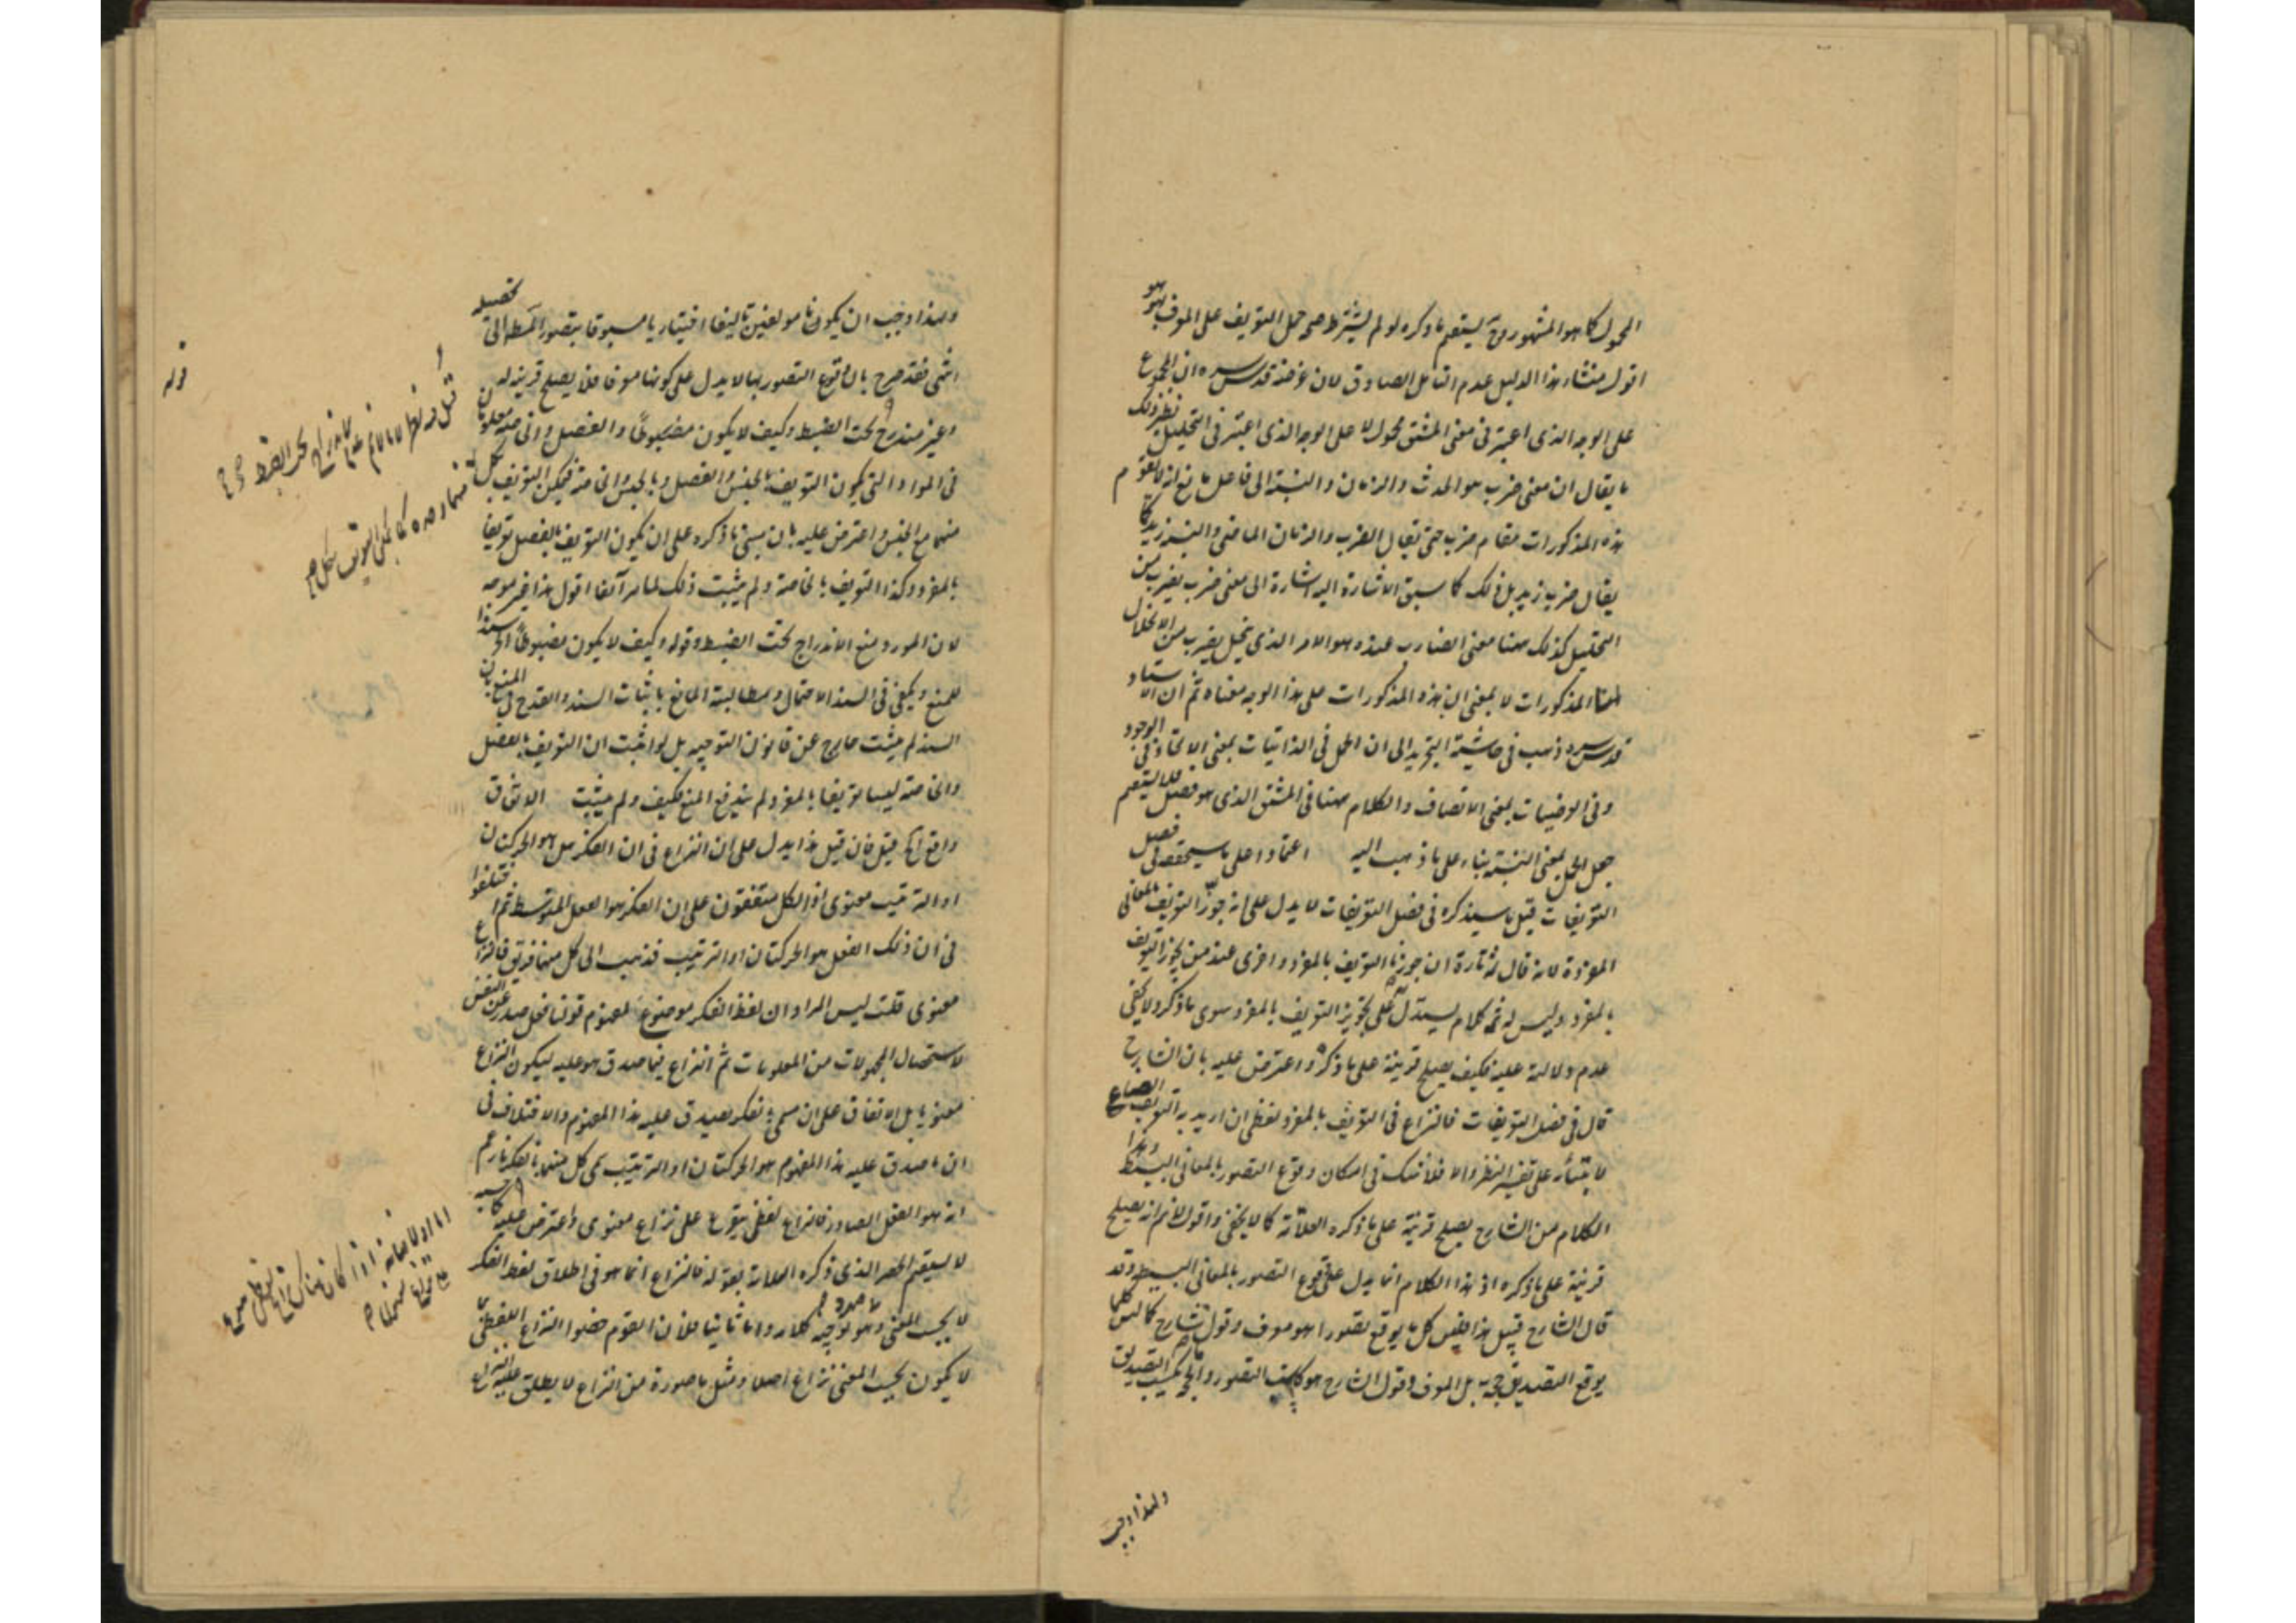 المحمول كما هو المشهور وح يستقيم ما ذكره لو لم يشترط صحة حمل التعريف على المعرف بهو هو
اقول منشاء هذا الدليل عدم التامل الصادق لان غرضه قدس سره ان المجموع
على الوجه الذى اعتبر فى معنى المشتق محمول لا على الوجه الذى اعتبر فى التحليل نظير ذلك
ما يقال ان معنى ضرب هو الحدث والزمان والنسبة الى فاعل ما مع انه لا تقوم
هذه المذكورات مقام ضرب حتى يقال الضرب والزمان الماضى والنسبة زيد كما
يقال ضرب زيد بل ذلك كما سبق الاشارة اليه اشارة الى معنى ضرب بضرب من
التحليل كذلك ههنا معنى الضارب عنده هو الامر الذى ينحل بضرب من الانحلال
الى المذكورات لا بمعنى ان هذه المذكورات على هذا الوجه معناه ثم ان الاستاد
قدس سره ذهب فى حاشية التجريد الى ان الحمل فى الذاتيات بمعنى الاتحاد فى الوجود
وفى العرضيات بمعنى الاتصاف والكلام ههنا فى المشتق الذى هو فصل فلا يستقيم
جعل الحمل بمعنى النسبة بناء على ما ذهب اليه اعتمادا على ما سيحققه فى فصل
التعريفات قيل ما سيذكره فى فصل التعريفات لا يدل على انه جوز التعريف بالمعانى
المفردة لانه قال ثمه تارة ان جوزنا التعريف بالمفرد واخرى عند من يجوز التعريف
بالمفرد وليس له ثمه كلام يستدل به على تجويز التعريف بالمفرد سوى ما ذكر ولا يخفى
عدم دلالته عليه فكيف يصلح قرينة على ما ذكره واعترض عليه بان الشارح
قال فى فصل التعريفات فالنزاع فى التعريف بالمفرد لفظى ان اريد به التعريف الصناعى
لابتنائه على تفسير النظر والا فلا شك فى امكان وقوع التصور بالمعانى البسيطة وهذا
الكلام من الشارح يصلح قرينة على ما ذكره العلامة كما لا يخفى واقول لا نم انه يصلح
قرينة على ما ذكره اذ هذا الكلام انما يدل على وقوع التصور بالمعانى البسيطة وقد
قال الشارح قبيل هذا فليس كل ما يوقع تصورا هو معرف وقول الشارح كما ليس كلما
يوقع التصديق حجة بل المعرف وقول الشارح هو كاسب التصور والحجة كاسب التصديق
ولهذا وجب
ولهذا وجب ان يكونا مؤلفين تاليفا اختياريا مسبوقا بتصور المط الى تحصيله
انتهى فقد صرح بان وقوع التصور بها لا يدل على كونها معرفا فلا يصلح قرينة له
وغير مندرج تحت الضبط وكيف لا يكون مضبوطا والفصل والخاصة معلومان
فى المواد التى يكون التعريف بالجنس والفصل وبالجنس والخاصة فيمكن التعريف بكل
منهما مع الجنس واعترض عليه بان مبنى ما ذكره على ان يكون التعريف بالفصل تعريفا
بالمفرد وكذا التعريف بالخاصة ولم يثبت ذلك لما مر آنفا اقول هذا غير موجه
لان المورد منع الاندراج تحت الضبط وقوله وكيف لا يكون مضبوطا الخ سند
للمنع ويكفى فى السند الاحتمال ومطالبة المانع باثبات السند والقدح فى المنع بان
السند لم يثبت خارج عن قانون التوجيه بل لو اثبت ان التعريف بالفصل
والخاصة ليسا تعريفا بالمفرد لم يندفع المنع فكيف ولم يثبت الاتفاق
واقع الخ قيل فان قيل هذا يدل على ان النزاع فى ان الفكر هل هو الحركتان
او الترتيب معنوى اذ الكل متفقون على ان الفكر هو الفعل المتوسط ثم اختلفوا
فى ان ذلك الفعل هو الحركتان او الترتيب فذهب الى كل منهما فريق فالنزاع
معنوى قلت ليس المراد ان لفظ الفكر موضوع لمفهوم قولنا فعل صدر عن النفس
لاستحصال المجهولات من المعلومات ثم النزاع فيما صدق هو عليه ليكون النزاع
معنويا بل الاتفاق على ان مسمى الفكر يصدق عليه هذا المفهوم والاختلاف فى
ان ما صدق عليه هذا المفهوم هو الحركتان او الترتيب سمى كل منهما بالفكر بازعم
انه هو الفعل الصادر فالنزاع لفظى يتفرع على نزاع معنوى واعترض عليه
لا يستقيم الحصر الذى ذكره العلامة بقوله فالنزاع انما هو فى اطلاق لفظ الفكر
لا بحسب المعنى وهو توجيه كلامه واما ثانيا فلان القوم خصوا النزاع اللفظى بما
لا يكون بحسب المعنى نزاع اصلا ومثل ما صورة من النزاع لا يطلق عليه النزاع
قوله